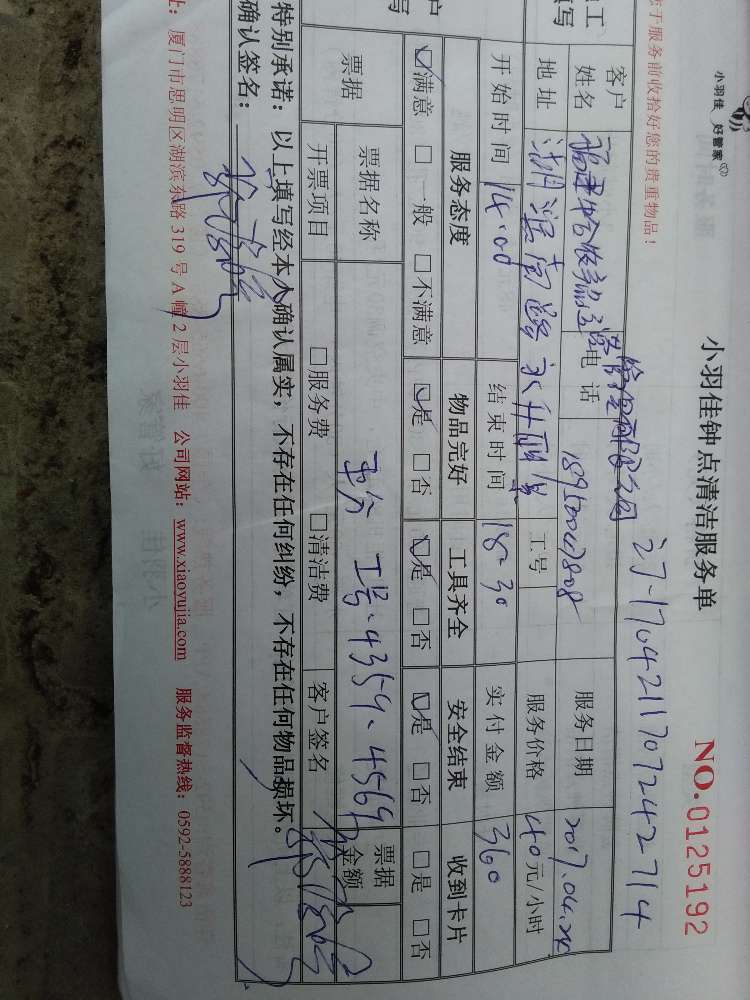 小羽佳 好管家
小羽佳钟点清洁服务单
NO.0125192
于服务前收拾好您的贵重物品！
订-1704211707242714
客户姓名
电话
服务日期 2017.04.
地址
工号
服务价格 40元/小时
开始时间 14.00 结束时间 18-30 实付金额 360
服务态度 物品完好 工具齐全 安全结束 收到卡片
☑满意 □一般 □不满意 ☑是 □否 ☑是 □否 ☑是 □否 □是 □否
票据 票据名称 工号.4359.4569 票据金额
开票项目 □服务费 □清洁费 客户签名
特别承诺：以上填写经本人确认属实，不存在任何纠纷，不存在任何物品损坏。
确认签名：
址：厦门市思明区湖滨东路 319 号 A 幢 2 层小羽佳 公司网站：www.xiaoyujia.com 服务监督热线：0592-5888123